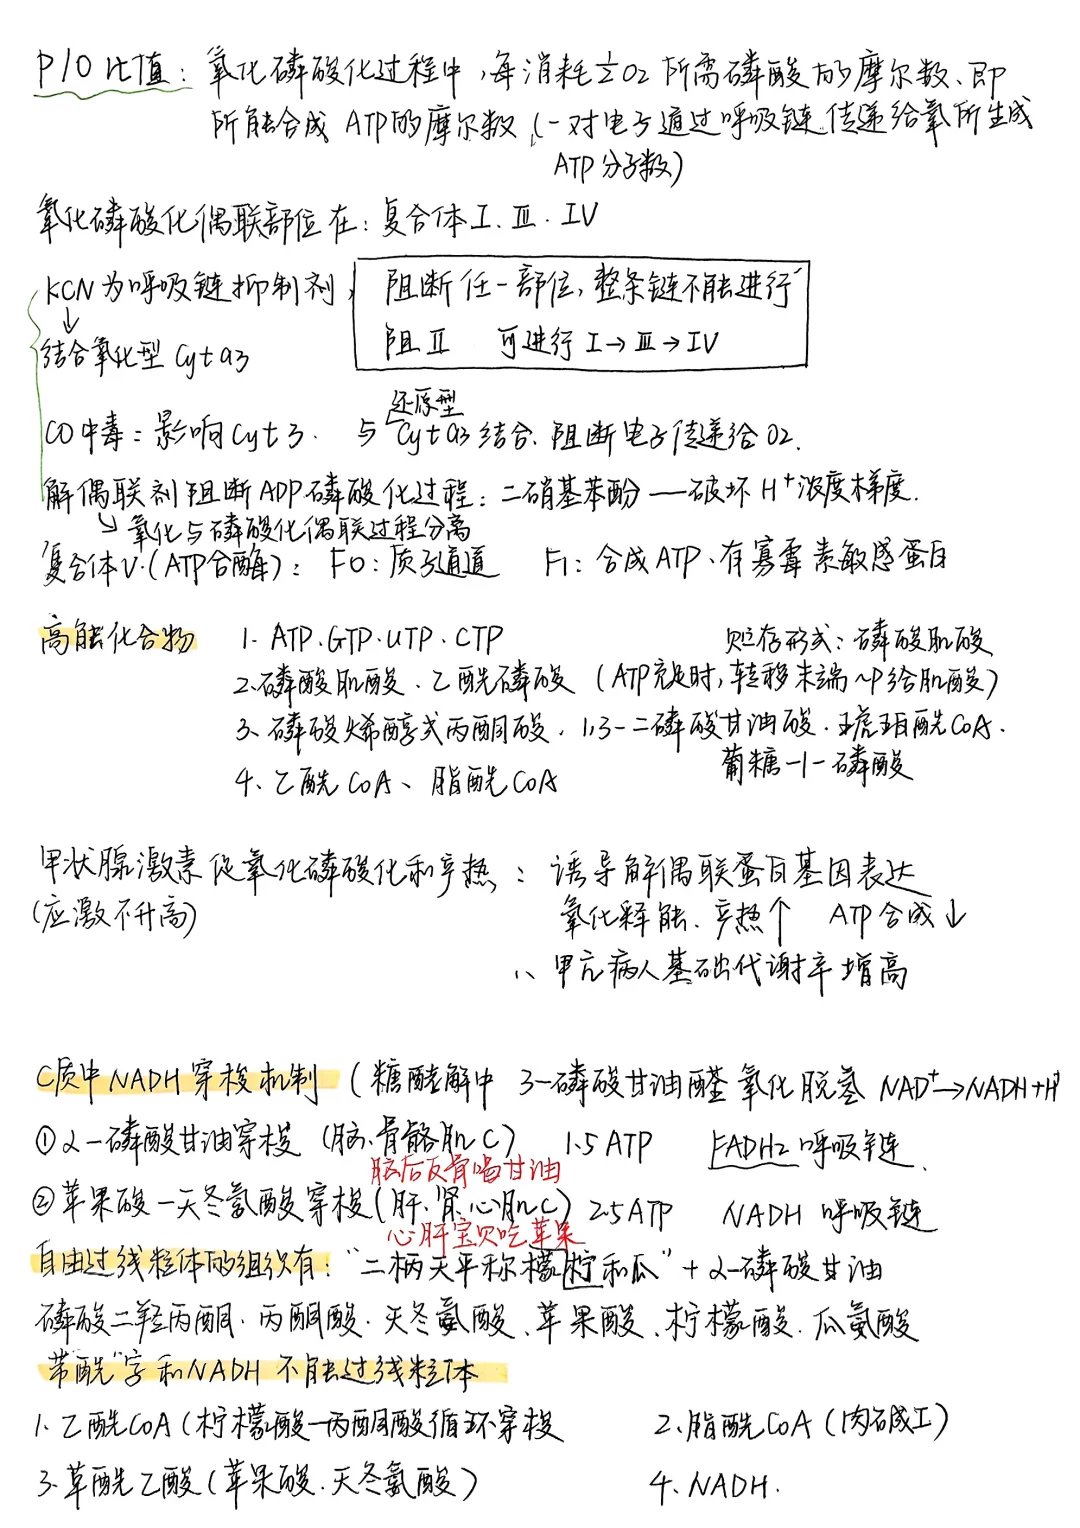 P/O比值：氧化磷酸化过程中，每消耗½O2所需磷酸的摩尔数、即
所能合成 ATP的摩尔数（一对电子通过呼吸链传递给氧所生成
ATP分子数）
氧化磷酸化偶联部位在：复合体Ⅰ.Ⅲ.Ⅳ
KCN为呼吸链抑制剂， 阻断任一部位，整条链不能进行
↓
结合氧化型 Cyta3 阻Ⅱ 可进行 Ⅰ→Ⅲ→Ⅳ
还原型
CO中毒：影响Cyt3. 与Cyta3结合.阻断电子传递给O2.
解偶联剂阻断ADP磷酸化过程：二硝基苯酚——破坏H+浓度梯度.
↘氧化与磷酸化偶联过程分离
复合体Ⅴ.(ATP合酶)： F0：质子通道 F1：合成ATP、有寡霉素敏感蛋白
高能化合物 1. ATP.GTP.UTP.CTP 贮存形式：磷酸肌酸
2.磷酸肌酸.乙酰磷酸（ATP充足时，转移末端~P给肌酸）
3、磷酸烯醇式丙酮酸.1,3-二磷酸甘油酸.琥珀酰CoA.
葡糖-1-磷酸
4、乙酰CoA、脂酰CoA
甲状腺激素促氧化磷酸化和产热：诱导解偶联蛋白基因表达
(应激不升高) 氧化释能.产热↑ ATP合成↓
∴甲亢病人基础代谢率增高
C质中NADH穿梭机制（糖酵解中 3-磷酸甘油醛氧化脱氢 NAD+→NADH+H+
①α-磷酸甘油穿梭（脑.骨骼肌C） 1.5ATP FADH2呼吸链.
脑后反骨喝甘油
②苹果酸-天冬氨酸穿梭（肝.肾.心肌C）2.5ATP NADH呼吸链
心肝宝贝吃苹果
自由过线粒体的组织有：“二柄天平称檬柠和瓜”+α-磷酸甘油
磷酸二羟丙酮.丙酮酸.天冬氨酸、苹果酸、柠檬酸.瓜氨酸
带“酰”字和NADH不能过线粒体
1.乙酰CoA（柠檬酸-丙酮酸循环穿梭 2.脂酰CoA（肉碱Ⅰ）
3.草酰乙酸（苹果酸.天冬氨酸） 4、NADH.